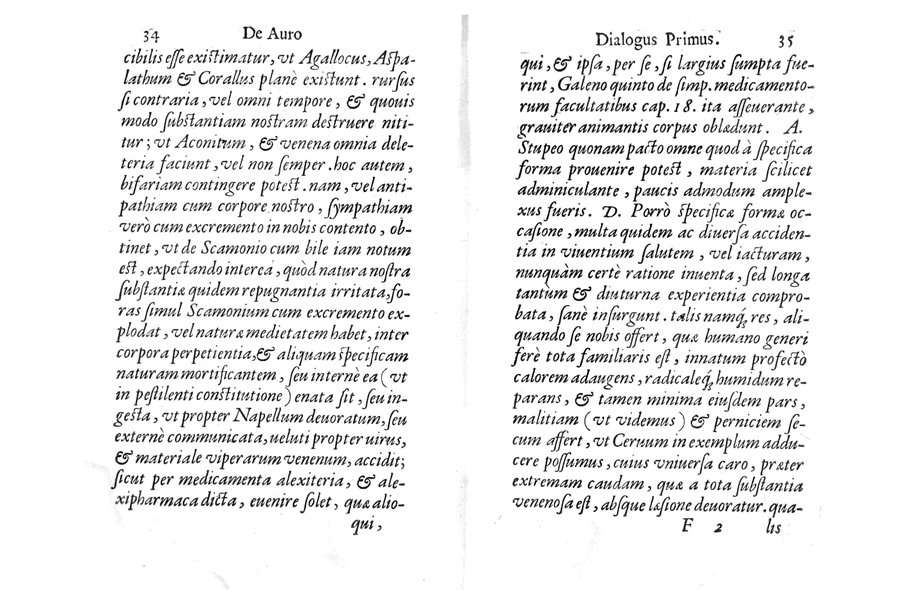 34 De Auro
cibilis eſſe exiſtimatur, vt Agallocus, Aſpa-
lathum & Corallus planè exiſtunt. rurſus
ſi contraria, vel omni tempore, & quouis
modo ſubſtantiam noſtram deſtruere niti-
tur; vt Aconitum, & venena omnia dele-
teria faciunt, vel non ſemper. hoc autem,
bifariam contingere poteſt. nam, vel anti-
pathiam cum corpore noſtro, ſympathiam
verò cum excremento in nobis contento, ob-
tinet, vt de Scamonio cum bile iam notum
est, expectando interea, quòd natura noſtra
ſubſtantiæ quidem repugnantia irritata, fo-
ras ſimul Scamonium cum excremento ex-
plodat, vel naturæ medietatem habet, inter
corpora perpetientia, & aliquam ſpecificam
naturam mortificantem, ſeu internè ea (vt
in peſtilenti conſtitutione) enata ſit, ſeu in-
geſta, vt propter Napellum deuoratum, ſeu
externè communicata, ueluti propter uirus,
& materiale viperarum venenum, accidit;
ſicut per medicamenta alexiteria, & ale-
xipharmaca dicta, euenire ſolet, quæ alio-
qui,
Dialogus Primus. 35
qui, & ipſa, per ſe, ſi largius ſumpta fue-
rint, Galeno quinto de ſimp. medicamento-
rum facultatibus cap. 18. ita aſſeuerante,
grauiter animantis corpus oblædunt. A.
Stupeo quonam pacto omne quod à ſpecifica
forma prouenire poteſt, materia ſcilicet
adminiculante, paucis admodumample-
xus fueris. D. Porrò ſpecificæ formæ oc-
caſione, multa quidem ac diuerſa acciden-
tia in viuentium ſalutem, vel iacturam,
nunquàm certè ratione inuenta, ſed longa
tantùm & diuturna experientia compro-
bata, ſanè inſurgunt. talis namq́; res, ali-
quando ſe nobis offert, quæ humano generi
ferè tota familiaris eſt, innatum profectò
calorem adaugens, radicaleq́; humidum re-
parans, & tamen minima eiuſdem pars,
malitiam (vt videmus) & perniciem ſe-
cum affert, vt Ceruum in exemplum addu-
cere poſſumus, cuius vniuerſa caro, præter
extremam caudam, quæ a tota ſubſtantia
venenoſa eſt, abſque læſione deuoratur. qua-
F 2 lis